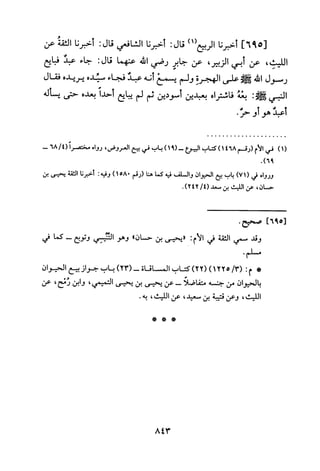 [٦٩٥] أخبرنا الربيع(١) قال: أخبرنا الشافعي قال: أخبرنا الثقة عن
الليث، عن أبي الزبير، عن جابر رضي الله عنهما قال: جاء عبدٌ فبايع
رسول الله ﷺ على الهجرة ولم يسمع أنه عبدٌ فجاء سيّده يريده فقال
النبي ﷺ: بعْهُ فاشتراه بعبدين أسودين ثم لم يبايع أحداً بعده حتى يسأله
أعبدٌ هو أم حرٌّ.
(١) في الأم (رقم ١٤٦٨) كتاب البيوع - (١٩) باب في بيع العروض، رواه مختصراً (٦٨/٤ -
٦٩).
ورواه في (٧١) باب بيع الحيوان والسلف فيه كما هنا (رقم ١٥٨٠) وفيه: أخبرنا الثقة يحيى بن
حسان، عن الليث بن سعد (٢٤٢/٤).
[٦٩٥] صحيح.
وقد سمى الثقة في الأم: «يحيى بن حسان» وهو التِّنِّيسي وتوبع - كما في
مسلم.
* م: (١٢٢٥/٣) (٢٢) كتاب المساقاة - (٢٣) باب جواز بيع الحيوان
بالحيوان من جنسه متفاضلاً - عن يحيى بن يحيى التميمي، وابن رُمْح، عن
الليث، وعن قتيبة بن سعيد، عن الليث، به.
* * *
٨٤٣